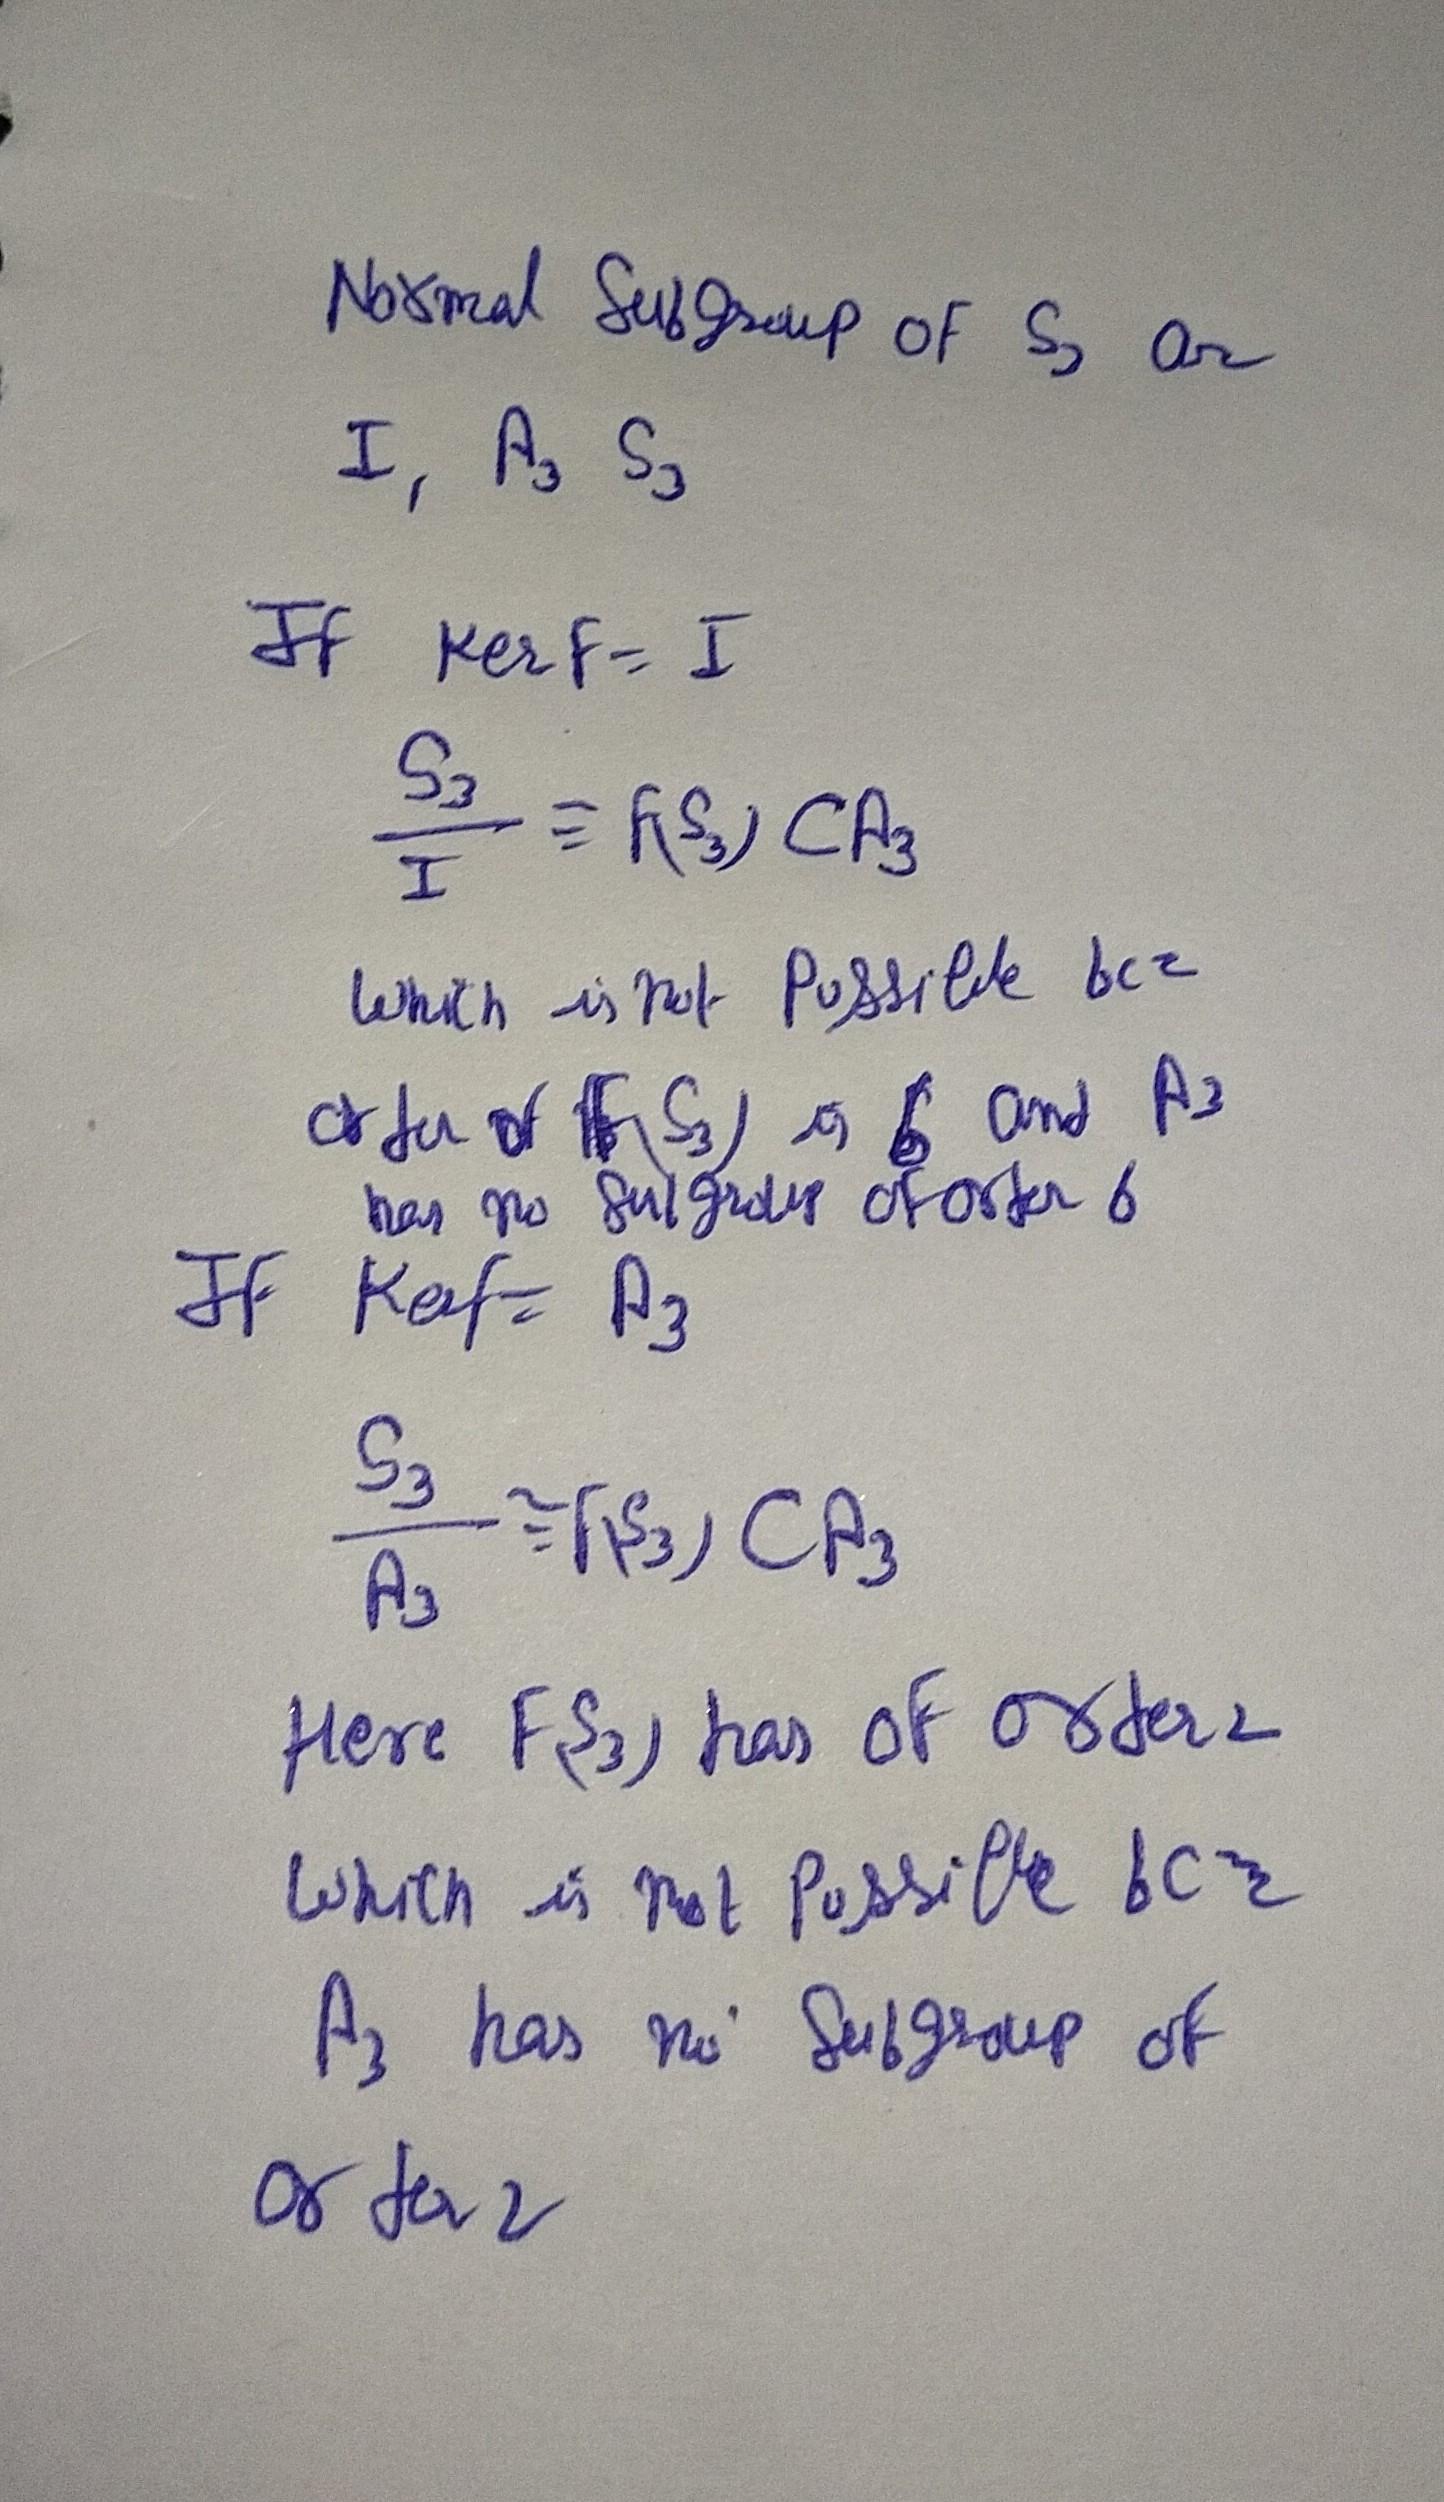 Normal Subgroup of S₃ are
I, A₃ S₃
If Ker f = I
S₃
/I ≅ f(S₃) ⊂ A₃
which is not Possible bcz
order of f(S₃) is 6 and A₃
has no Subgroup of order 6
If Kerf = A₃
S₃
/A₃ ≅ f(S₃) ⊂ A₃
Here F(S₃) has of order 2
which is not Possible bcz
A₃ has no Subgroup of
order 2